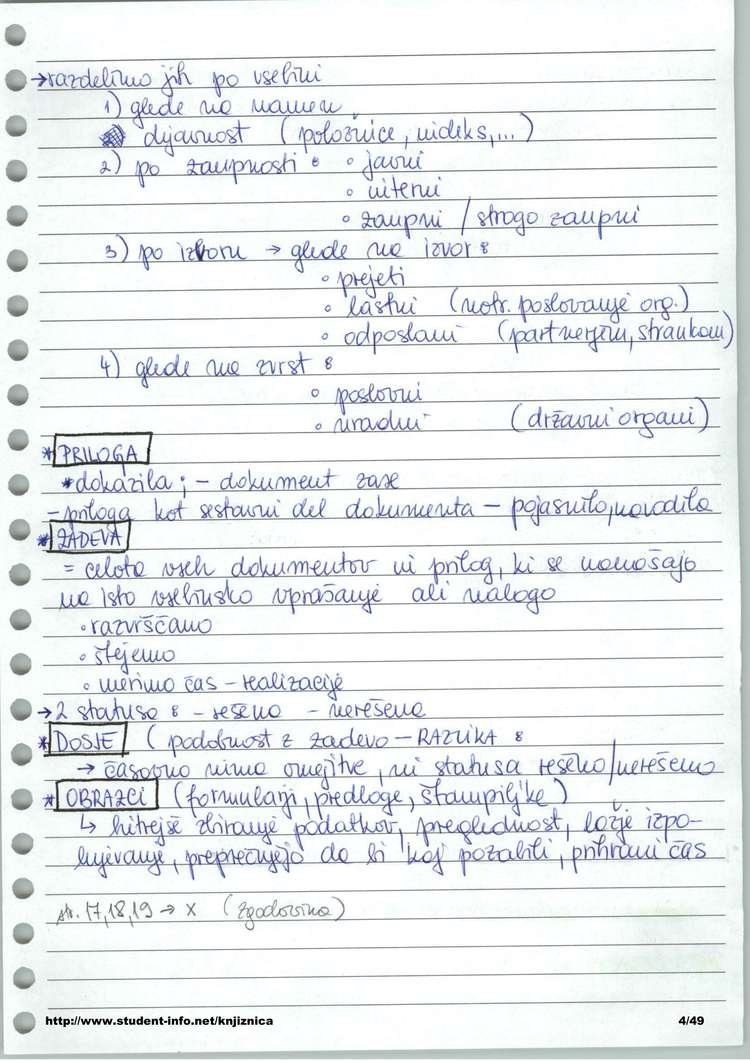 →razdelimo jih po vsebini
1) glede na namen
dejavnost (položnice, indeks,...)
2) po zaupnosti: ∘ javni
∘ interni
∘ zaupni / strogo zaupni
3) po izvoru → glede na izvor:
∘ prejeti
∘ lastni (notr. poslovanje org.)
∘ odposlani (partnerjem, strankam)
4) glede na zvrst:
∘ poslovni
∘ uradni (državni organi)
* PRILOGA
*dokazila; – dokument zase
– priloga kot sestavni del dokumenta – pojasnilo, navodila
* ZADEVA
= celota vseh dokumentov in prilog, ki se nanašajo
na isto vsebinsko vprašanje ali nalogo
∘ razvrščamo
∘ štejemo
∘ merimo čas – realizacije
→ 2 statusa: – rešena – nerešena
* DOSJE (podobnost z zadevo – RAZLIKA:
→ časovno nima omejitve, ni statusa rešeno/nerešeno
* OBRAZCI (formularji, predloge, štampiljke)
↳ hitrejše zbiranje podatkov, preglednost, lažje izpo-
lnjevanje, preprečujejo da bi kaj pozabili, prihrani čas
str. 17, 18, 19 → x (zgodovina)
http://www.student-info.net/knjiznica
4/49